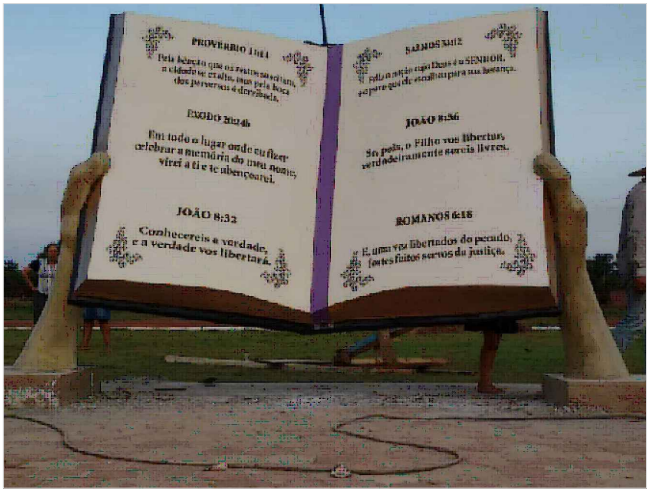 PROVÉRBIO 11:11
Pela bênção que os retos suscitam,
a cidade se exalta, mas pela boca
dos perversos é derribada.
EXODO 20:24b
Em todo o lugar onde eu fizer
celebrar a memória do meu nome,
virei a ti e te abençoarei.
JOÃO 8:32
Conhecereis a verdade,
e a verdade vos libertará.
SALMOS 33:12
Feliz a nação cuja Deus é o SENHOR,
e o povo que ele escolheu para sua herança.
JOÃO 8:36
Se, pois, o Filho vos libertar,
verdadeiramente sereis livres.
ROMANOS 6:18
E, uma vez libertados do pecado,
fostes feitos servos da justiça.